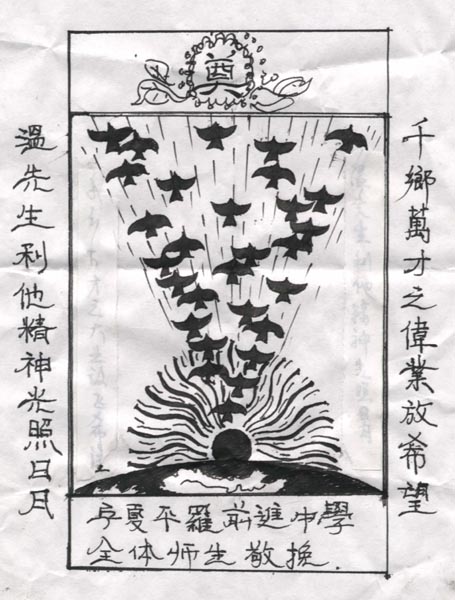 奠
千鄉萬才之偉業放希望
溫先生利他精神光照日月
宁夏平羅前進中學
全体师生敬挽.